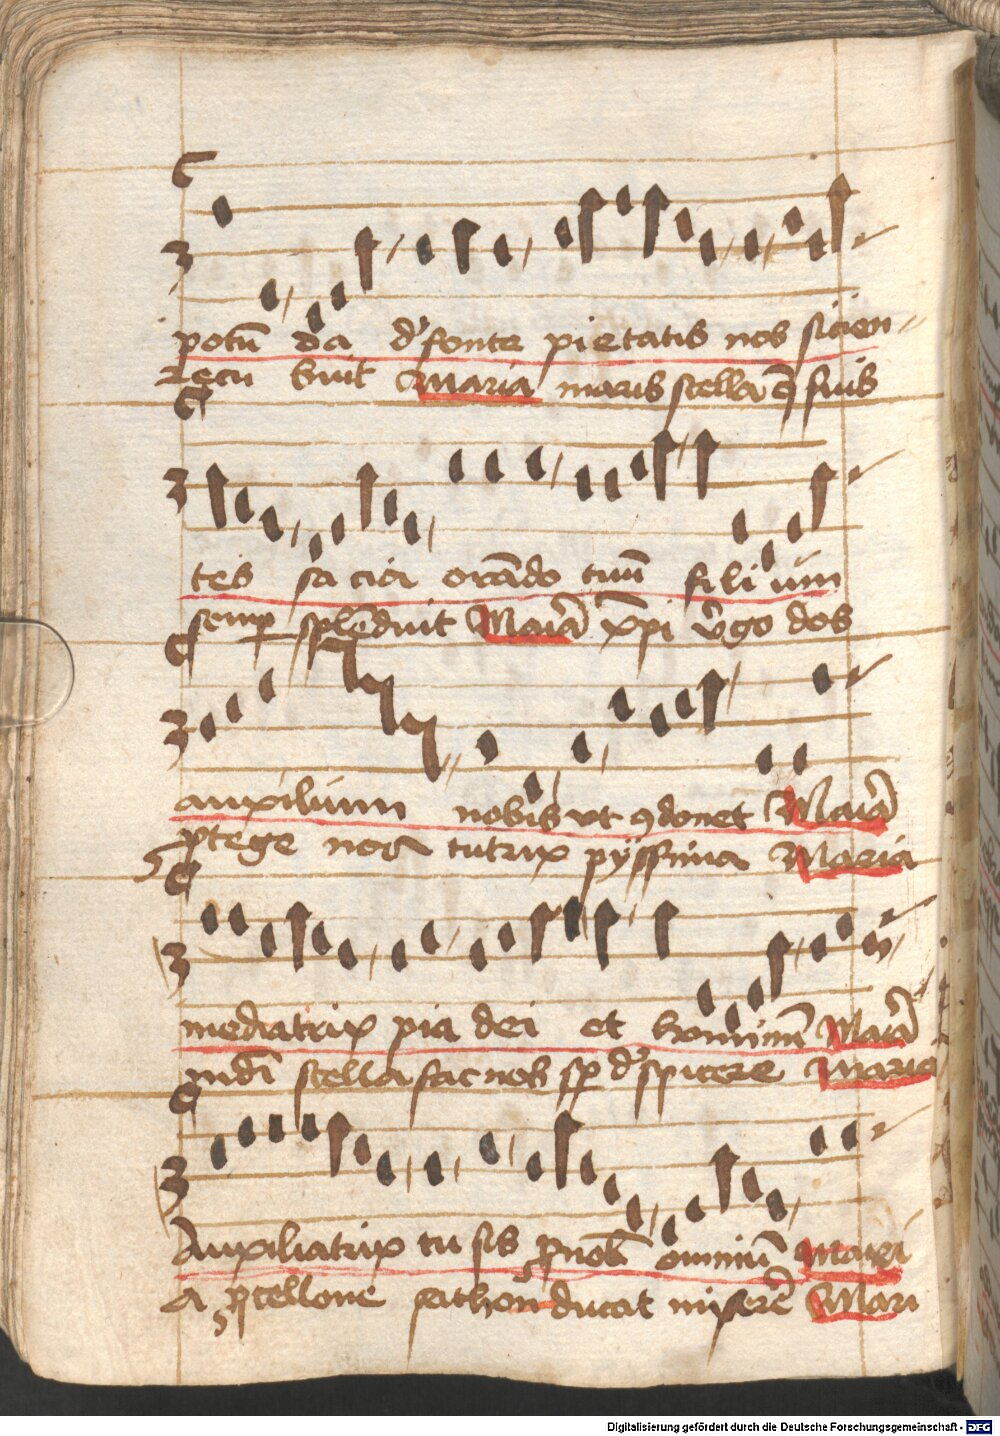 potū da d' fonte pietatis nos sicien
tecū fuit Maria maris stella q̄ suis
tes sacia orādo tuū filium
semp splēduit Maīa xp̄i v̄go dos
auxilium nobis ut 9donet Maīa
ptege nos tutrix pyssima Maria
mediatrix pia dei et hominū Maīa
mdī stella fac nos sp d'spicere Maria
Auxiliatrix tu sis p nob̄ omniū Mari
a pcellone ducat miserē Mari
Digitalisierung gefördert durch die Deutsche Forschungsgemeinschaft - DFG